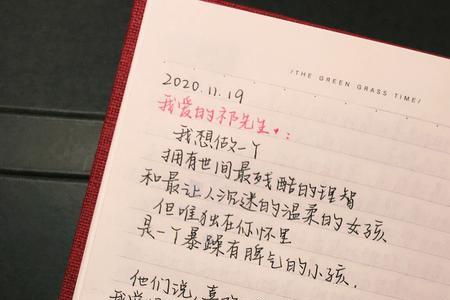 /THE GREEN GRASS TIME/
2020.11.19
我爱的祁先生♥：
我想做一个
拥有世间最残酷的理智
和最让人沉迷的温柔的女孩
但唯独在你怀里
是一个暴躁有脾气的小孩.
他们说,喜欢